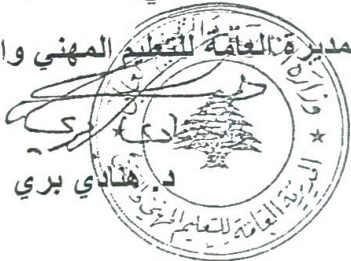 مديرة العامة للتعليم المهني وا
د. هنادي بري
المديرية العامة للتعليم المهني